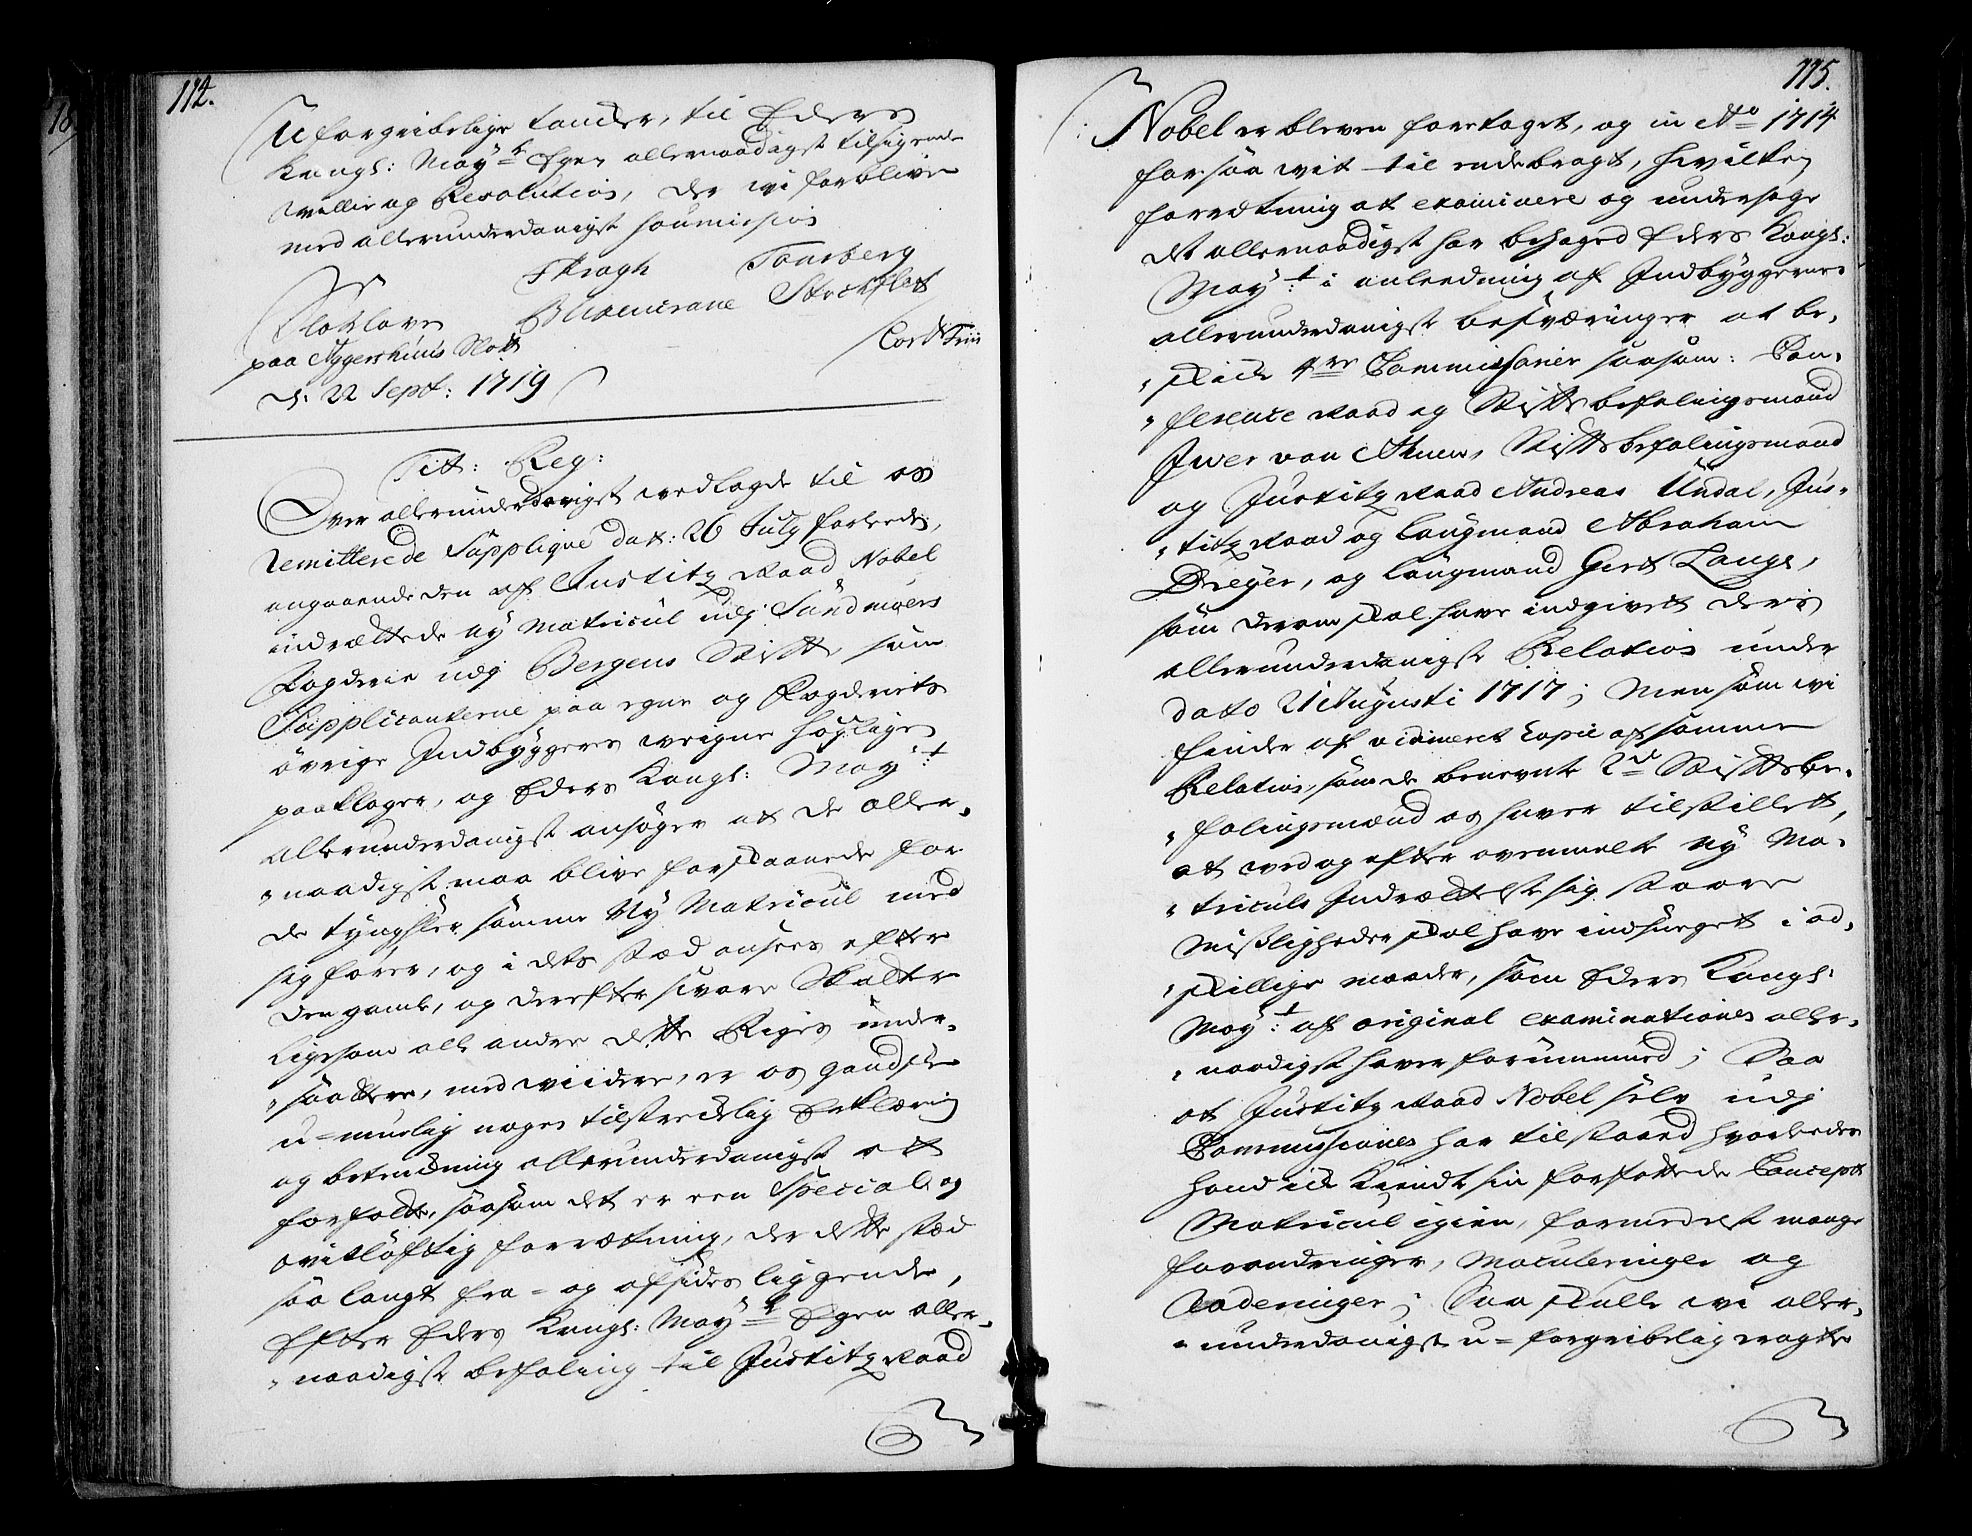 114.
Uforgribelige tancker, til Eders
Kongl: May.ts Egen allernaadigst tilsigende
Willie og Resolution, der wi forblive
med allerunderdanigst soumission
FKrogh Tonsberg
Blixencrone Stockflet
paa Aggershuus Slott
d. 22 Sept: 1719
Tit: Reg:
Over allerunderdanigst wedlagde til os
remitterede Supplique dat: 26 July forleden,
angaaende den af Justitz Raad Nobel
indrættede ny Matricul udj Sundmøers
Fogderie udj Bergens Stift, som
Supplicanterne paa egne og Fogderiets
övrige Indbyggeres weigne höyligen
paaklager, og Eders Kongl: May:t
allerunderdanigst ansöger at de aller-
naadigst maa blive forskaanede for
de tyngsler samme Ny Matricul med
sig förer, og i dets stæd ansees efter
den gamle, og derefter svare Skatter
ligesom alle andre dette Riges under-
saattere, med widere, er os gandske
u-muelig nogen tilstreckelig Erklæring
og betenckning allerunderdanigst at
forfatte, saasom det er een Special og
witlöftig forrætning, der dette stæd
saa langt fra- og afsides liggende,
Efter Eders Kongl: May.ts Egen aller-
naadigst befaling til Justitz Raad
115.
Nobel er bleven foretaget, og in Ao 1714
forsaa wit til endebragt, hvilken
forretning at examinere og undersöge
det allernaadigst har behaged Eders Kongl:
May:t i anledning af Indbyggernes
allerunderdanigste besværinger at be-
skicke 4re Commissarier saasom: Con-
ference Raad og Stiftsbefalingsmand
Iwer von Ahnen, Stiftsbefalingsmand
og Justitz Raad Andreas Undal, Jus-
titz Raad og Laugmand Abraham
Dreyer, og Laugmand Gert Lange,
som derom skal have indgivet deris
allerunderdanigste Relation under
dato 21 Augusti 1717; Men som wi
finder af vidimeret Copie af samme
Relation, som de benevnte 2de Stiftsbe-
falingsmænd os haver tilstillet,
at wed og efter ovenmelte ny Ma-
triculs Indrættelse sig stoere
Misligheder skal have indsneget i ad-
skillige maader, som Eders Kongl:
May:t af original examinationen aller-
naadigst haver fornummed; Saa
at Justitz Raad Nobel selv udj
Commissionen har tilstaaed hvorledes
hand icke kiendte sin forfattede Concept
Matricul igien, formedelst mange
forandringer, Maculeringer og
Raderinger; Saa skulle wi aller-
underdanigst u-forgribelig ragte